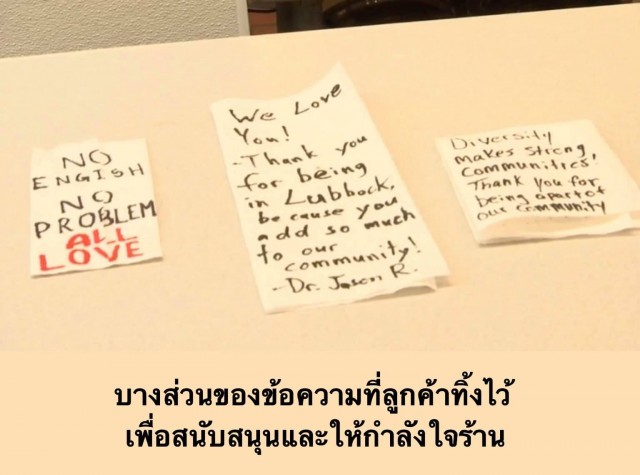 NO
ENGISH
NO
PROBLEM
ALL
LOVE
We Love
You!
-Thank you
for being
in Lubbock,
because you
add so much
to our
community!
-Dr. Jason R.
Diversity
makes streng
communities,
Thank you for
being apart of
our community
บางส่วนของข้อความที่ลูกค้าทิ้งไว้
เพื่อสนับสนุนและให้กำลังใจร้าน